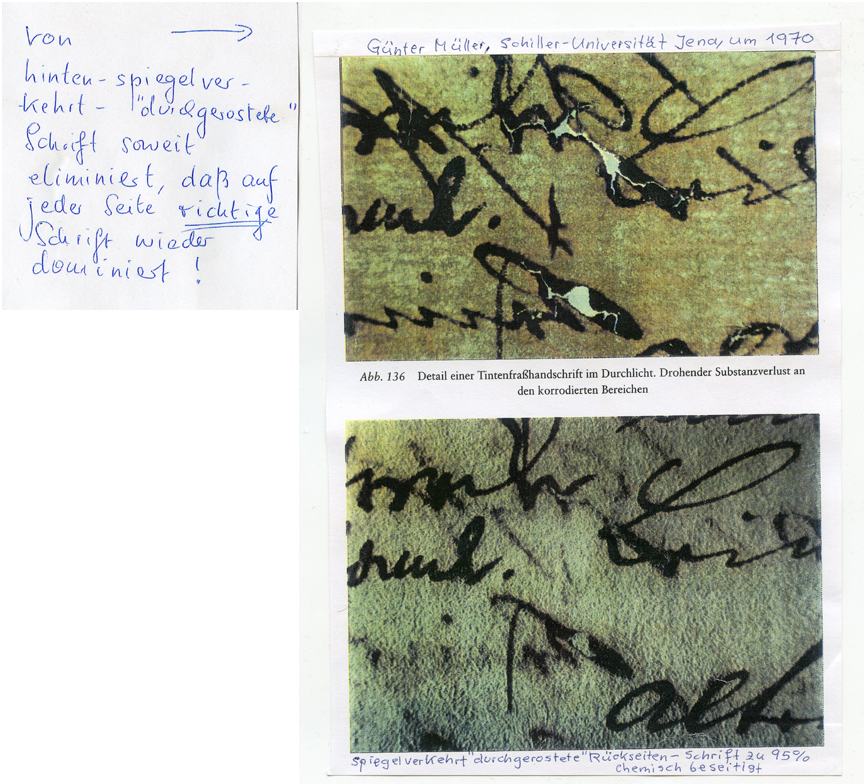 von
hinten-spiegelver-
kehrt - "durchgerostete"
Schrift soweit
eliminiert, daß auf
jeder Seite richtige
Schrift wieder
dominiert !
Günter Müller, Schiller-Universität Jena, um 1970
Abb. 136 Detail einer Tintenfraßhandschrift im Durchlicht. Drohender Substanzverlust an
den korrodierten Bereichen
spiegelverkehrt "durchgerostete" Rückseiten-Schrift zu 95%
chemisch beseitigt